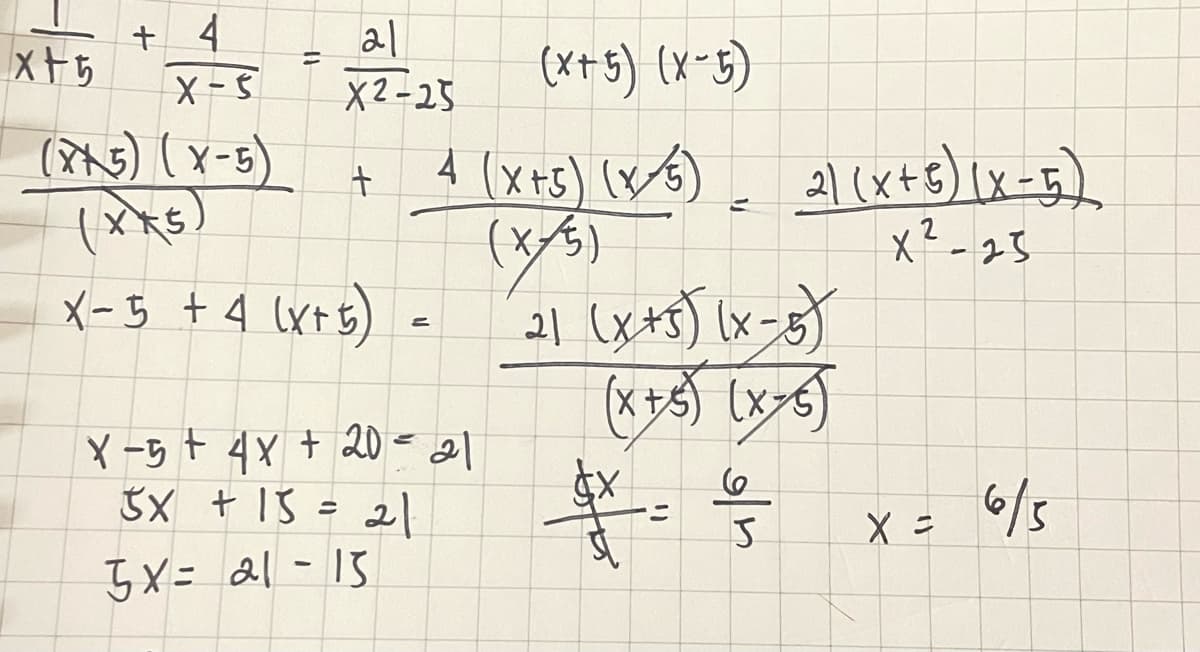 1/(x+5) + 4/(x-5) = 21/(x2-25) (x+5) (x-5)
(x+5) (x-5)/(x+5) + 4 (x+5) (x-5)/(x-5) = 21 (x+5) (x-5)/(x²-25)
x-5 + 4 (x+5) = 21 (x+5) (x-5)/((x+5) (x-5))
x-5 + 4x + 20 = 21
5x + 15 = 21
5x = 21 - 15
5x/5 = 6/5
x = 6/5